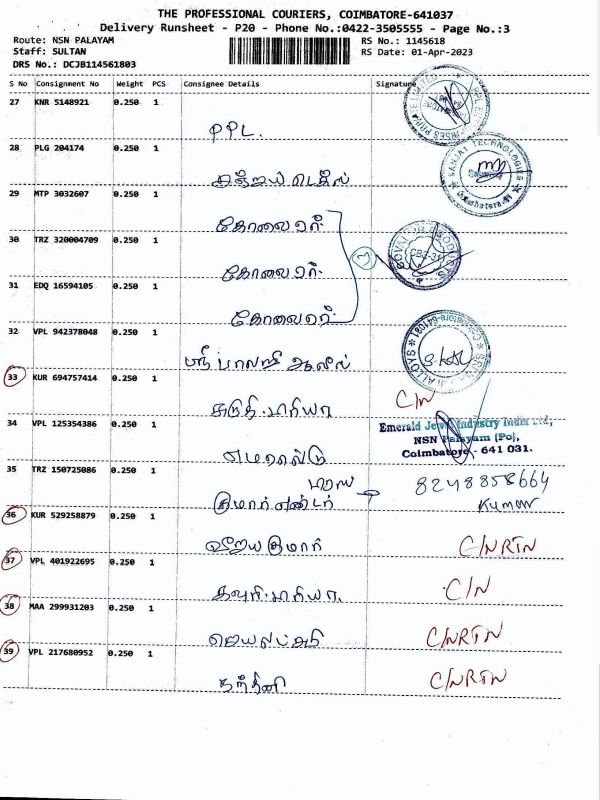 THE PROFESSIONAL COURIERS, COIMBATORE-641037
Delivery Runsheet - P20 - Phone No.:0422-3505555 - Page No.:3
Route: NSN PALAYAM
RS No.: 1145618
Staff: SULTAN
RS Date: 01-Apr-2023
DRS No.: DCJB114561803
S No Consignment No Weight PCS Consignee Details Signature
27 KNR 5148921 0.250 1
PPL.
28 PLG 204174 0.250 1
SANJAY TECHNOLOGIES
Coimbatore-31
29 MTP 3032607 0.250 1
கோவை ஏர்
30 TRZ 320004709 0.250 1
CBE-31
கோவை ஏர்
31 EDQ 16594105 0.250 1
கோவை ஏர்
32 VPL 942378048 0.250 1
ஸ்ரீ பாலாஜி
33 KUR 694757414 0.250 1
மரியா C/N
34 VPL 125354386 0.250 1
Emerald Jewel Industry India Ltd,
NSN Palayam (Po),
Coimbatore - 641 031.
எமரால்டு
35 TRZ 150725086 0.250 1
குமார் 8248858664
Kumar
36 KUR 529258879 0.250 1
விஜயகுமார் C/NRTN
37 VPL 401922695 0.250 1
கவுரி மரியா C/N
38 MAA 299931203 0.250 1
ஜெயலட்சுமி C/NRTN
39 VPL 217680952 0.250 1
நந்தினி C/NRTN